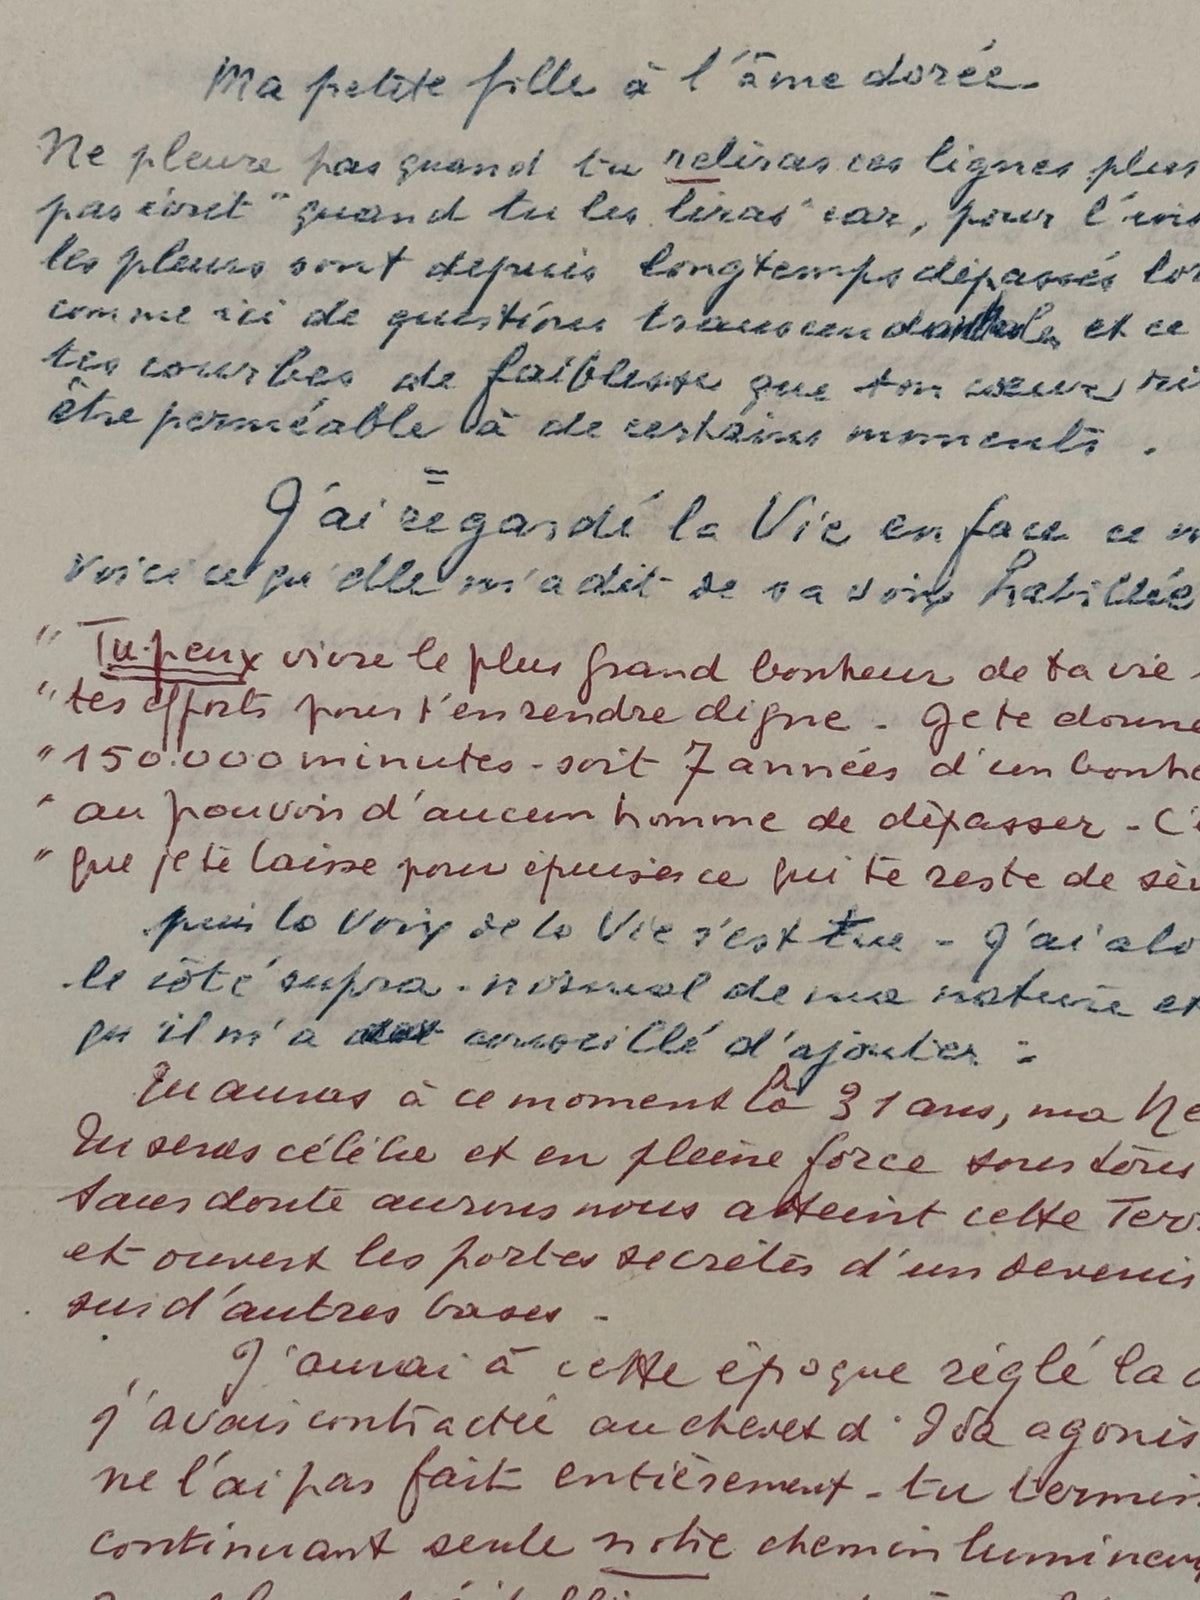 Ma petite fille à l'âme dorée
Ne pleure pas quand tu reliras ces lignes plus
pas écrit "quand tu les liras" car, pour l'
les pleurs sont depuis longtemps dépassés
comme ici de questions et ce
tes courbes de faiblesse que ton cœur
être perméable à de certains moments.
J'ai regardé la Vie en face ce
voici ce qu'elle m'a dit de sa voix habillée
" Tu peux vivre le plus grand bonheur de ta vie
" tes efforts pour t'en rendre digne - Je te donne
" 150.000 minutes - soit 7 années d'un
" au pouvoir d'aucun homme de dépasser -
" que je te laisse pour épuiser ce qui te reste de
puis la voix de la Vie s'est tue - J'ai
le côté supra-normal de ma nature et
qu'il m'a conseillé d'ajouter :
Tu auras à ce moment là 31 ans, ma
Tu seras célèbre et en pleine force sous
sans doute aurons nous atteint cette
et ouvert les portes secrètes d'un devenir
sur d'autres bases -
J'aurai à cette époque réglé la
j'avais contractée au chevet d'Ida
ne l'ai pas fait entièrement - tu
continuant seule notre chemin